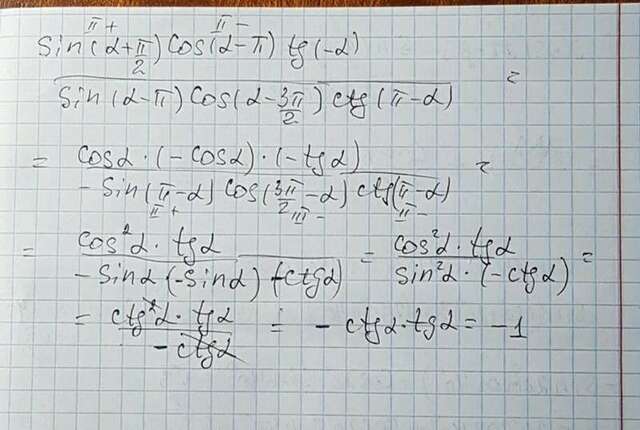 II + II −
sin(α+π/2) cos(α−π) tg(−α)
=
sin(α−π) cos(α−3π/2) ctg(π−α)
= cosα · (−cosα) · (−tgα) =
−sin(π−α) cos(3π/2−α) ctg(π−α)
II + III − II −
= cos²α · tgα = cos²α · tgα =
−sinα (−sinα) (−ctgα) sin²α · (−ctgα)
= ctg²α · tgα = − ctgα · tgα = −1
− ctgα